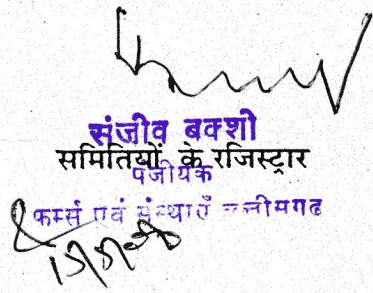 संजीव बक्शी
समितियों के रजिस्ट्रार
पंजीयक
फर्म्स एवं संस्थाएँ छत्तीसगढ